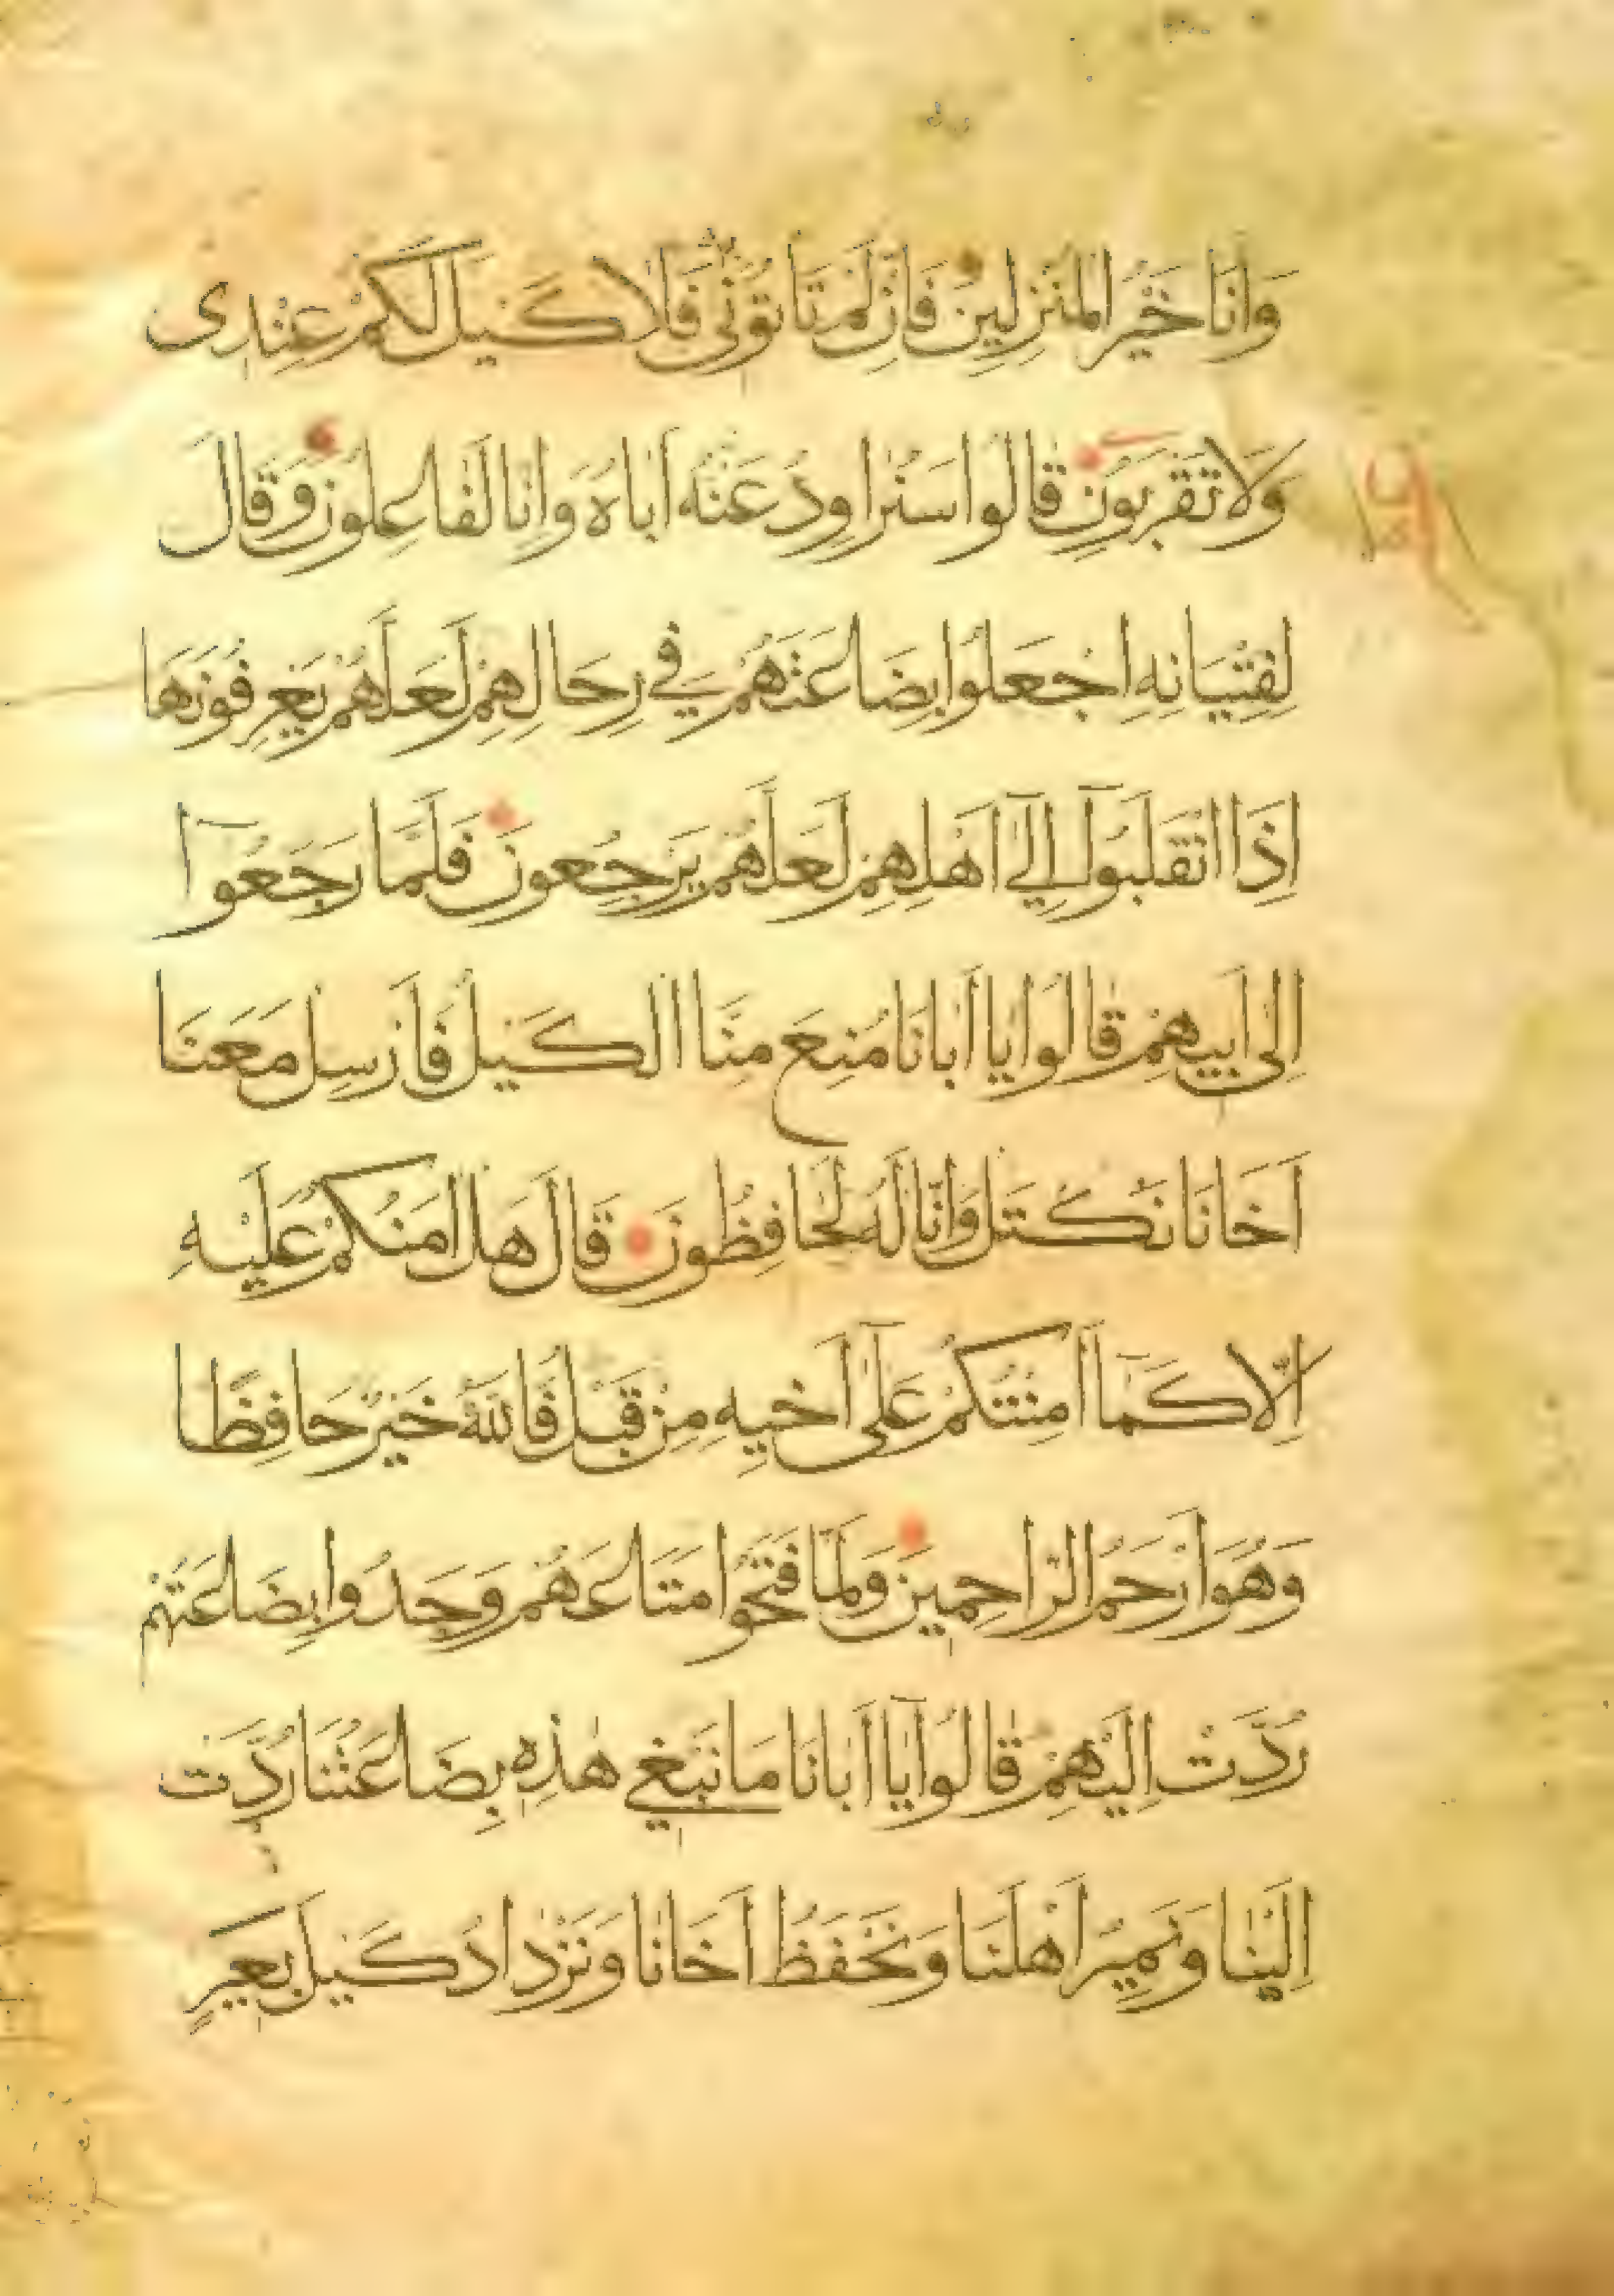 وَاَنَا خَيْرُ الْمُنْزِلِينَ فَاِنْ لَمْ تَاْتُوْنِى فَلَا كَيْلَ لَكُمْ عِنْدِى
وَلَا تَقْرَبُونِ قَالُوا سَنُرَاوِدُ عَنْهُ اَبَاهُ وَاِنَّا لَفَاعِلُونَ وَقَالَ
لِفِتْيَانِهِ اجْعَلُوا بِضَاعَتَهُمْ فِي رِحَالِهِمْ لَعَلَّهُمْ يَعْرِفُونَهَا
اِذَا انْقَلَبُوا اِلَى اَهْلِهِمْ لَعَلَّهُمْ يَرْجِعُونَ فَلَمَّا رَجَعُوا
اِلَى اَبِيهِمْ قَالُوا يَا اَبَانَا مُنِعَ مِنَّا الْكَيْلُ فَاَرْسِلْ مَعَنَا
اَخَانَا نَكْتَلْ وَاِنَّا لَهُ لَحَافِظُونَ قَالَ هَلْ اٰمَنُكُمْ عَلَيْهِ
اِلَّا كَمَا اَمِنْتُكُمْ عَلَى اَخِيهِ مِنْ قَبْلُ فَاللّٰهُ خَيْرٌ حَافِظًا
وَهُوَ اَرْحَمُ الرَّاحِمِينَ وَلَمَّا فَتَحُوا مَتَاعَهُمْ وَجَدُوا بِضَاعَتَهُمْ
رُدَّتْ اِلَيْهِمْ قَالُوا يَا اَبَانَا مَا نَبْغِي هٰذِهِ بِضَاعَتُنَا رُدَّتْ
اِلَيْنَا وَنَمِيرُ اَهْلَنَا وَنَحْفَظُ اَخَانَا وَنَزْدَادُ كَيْلَ بَعِيرٍ